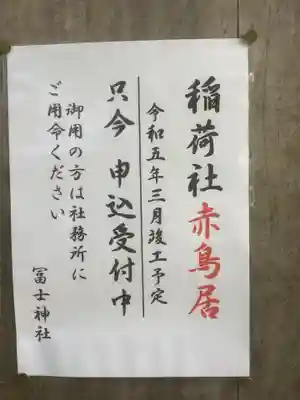 稲荷社赤鳥居
令和五年三月竣工予定
只今 申込受付中
御用の方は社務所に
ご用命ください
冨士神社